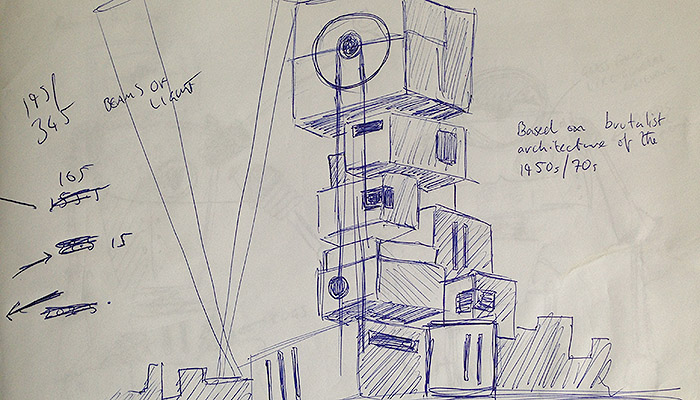 195/
345
BEAMS OF
LIGHT
165
15
Based on brutalist
architecture of the
1950s/70s